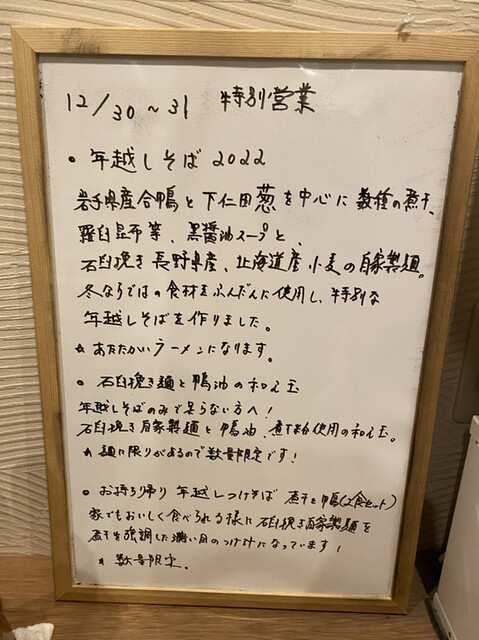 12/30～31 特別営業
• 年越しそば 2022
岩手県産合鴨と下仁田葱を中心に数種の煮干、
羅臼昆布等、黒醤油スープと、
石臼挽き長野県産、北海道産小麦の自家製麺。
冬ならではの食材をふんだんに使用し、特別な
年越しそばを作りました。
☆ あたたかいラーメンになります。
• 石臼挽き麺と鴨油の和え玉
年越しそばのみで足らない方へ！
石臼挽き自家製麺と鴨油、煮干も使用の和え玉。
☆ 麺に限りがあるので数量限定です！
• お持ち帰り 年越しつけそば 煮干と鴨(2食セット)
家でもおいしく食べられる様に石臼挽き自家製麺を
煮干を強調した濃い目のつけ汁になっています！
☆ 数量限定。